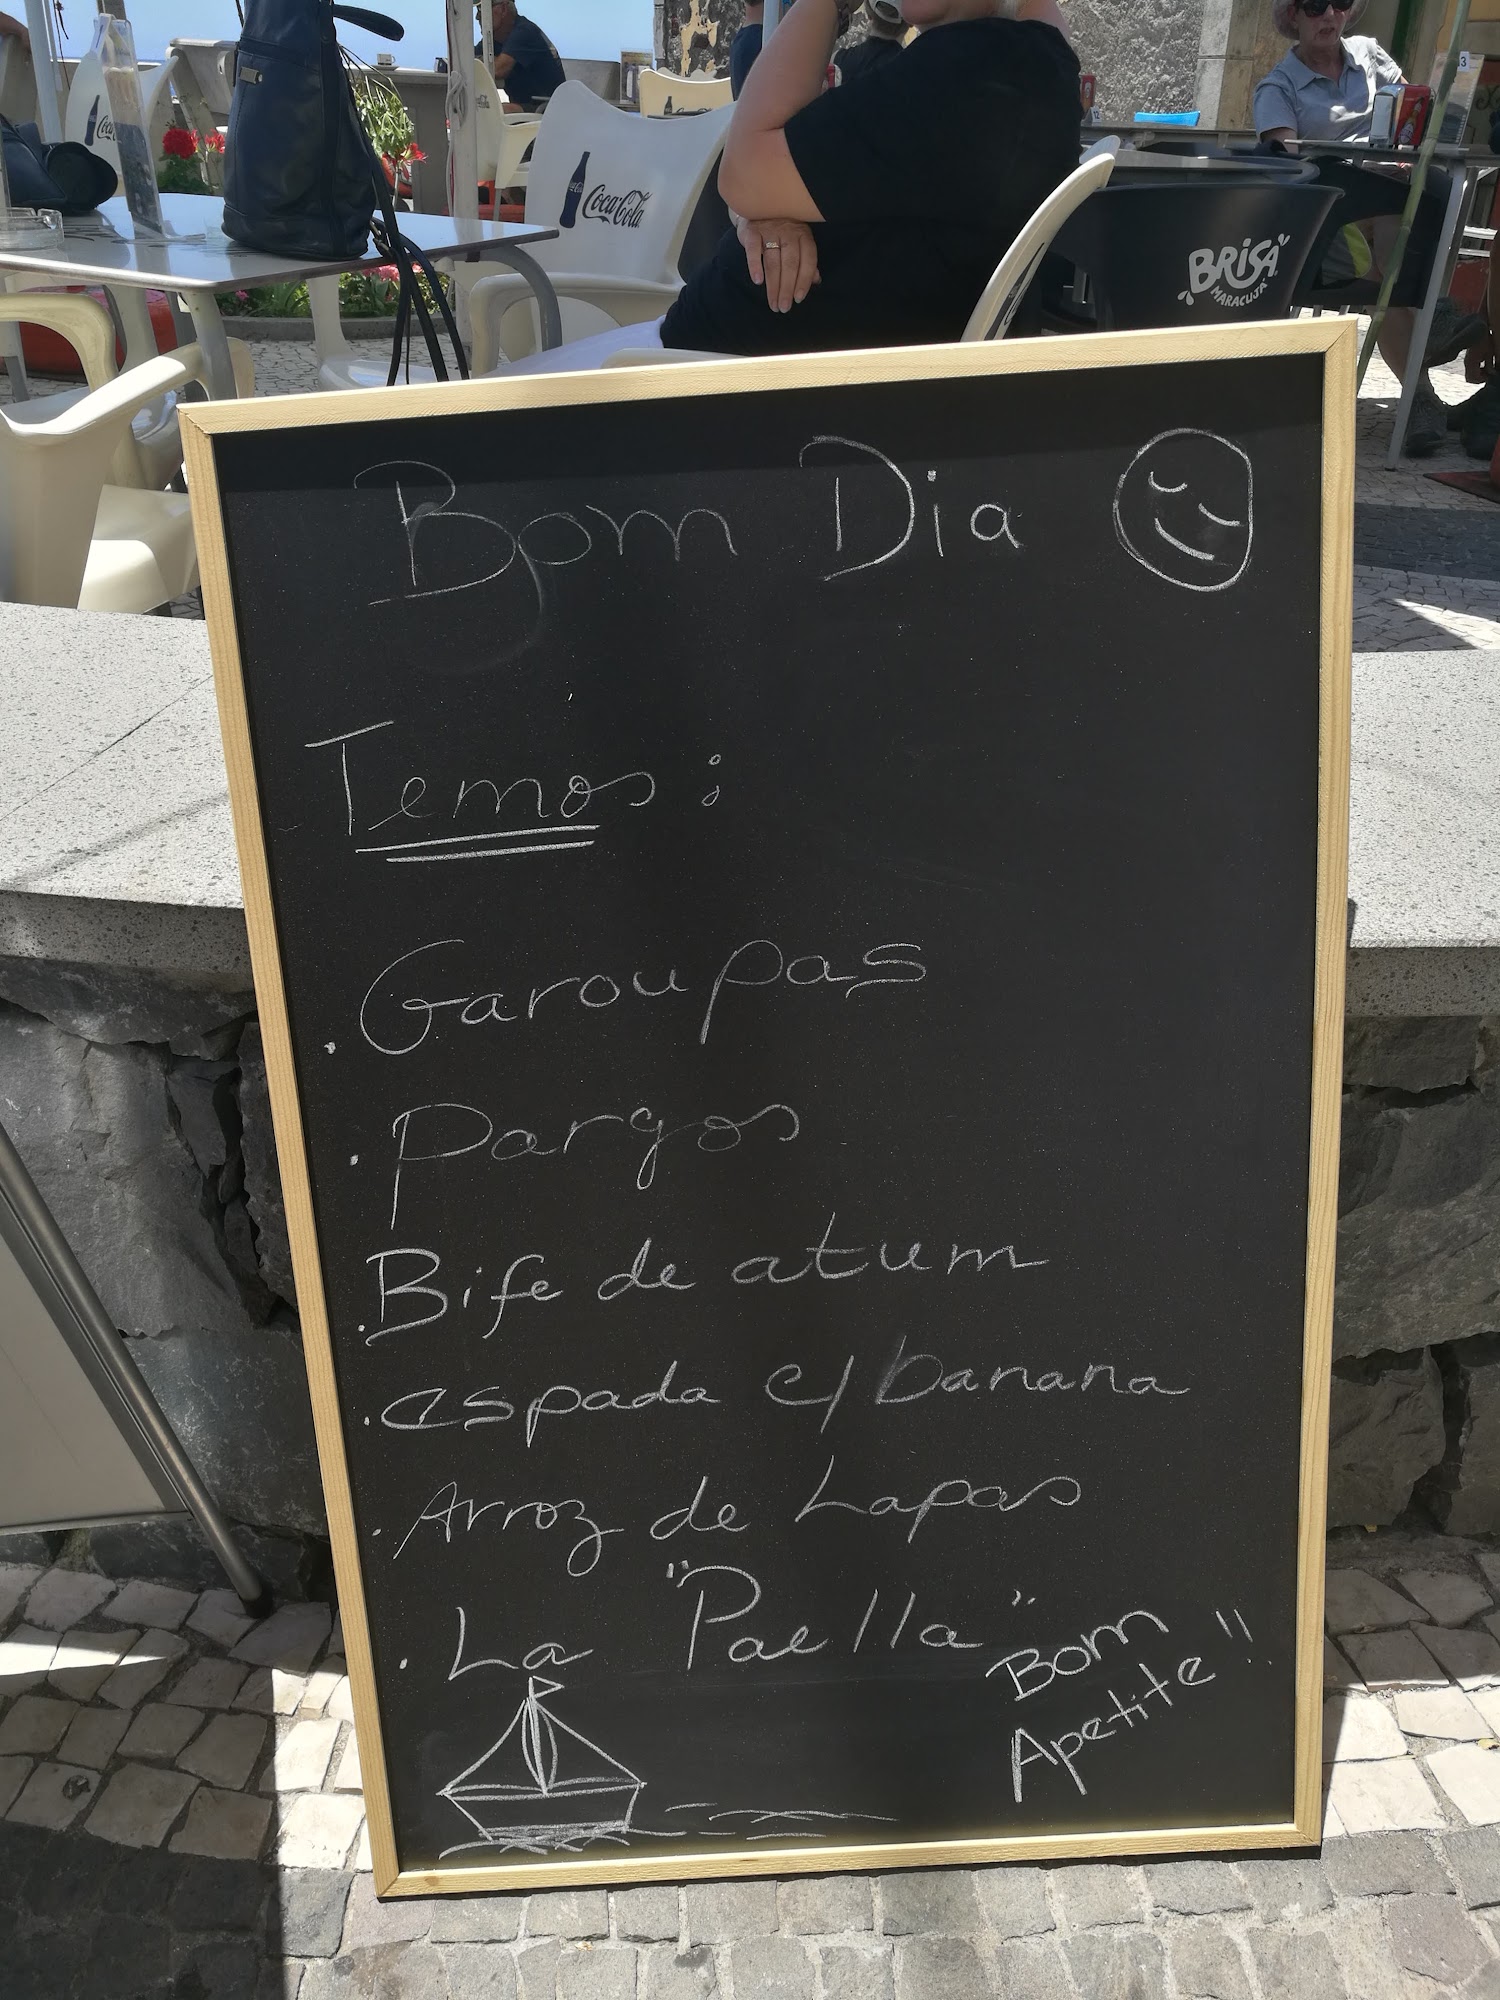 Coca-Cola
BRISA
MARACUJÁ
Bom Dia
Temos:
. Garoupas
. Pargos
. Bife de atum
. espada c/ banana
. Arroz de Lapas
. La "Paella"
Bom
Apetite!!